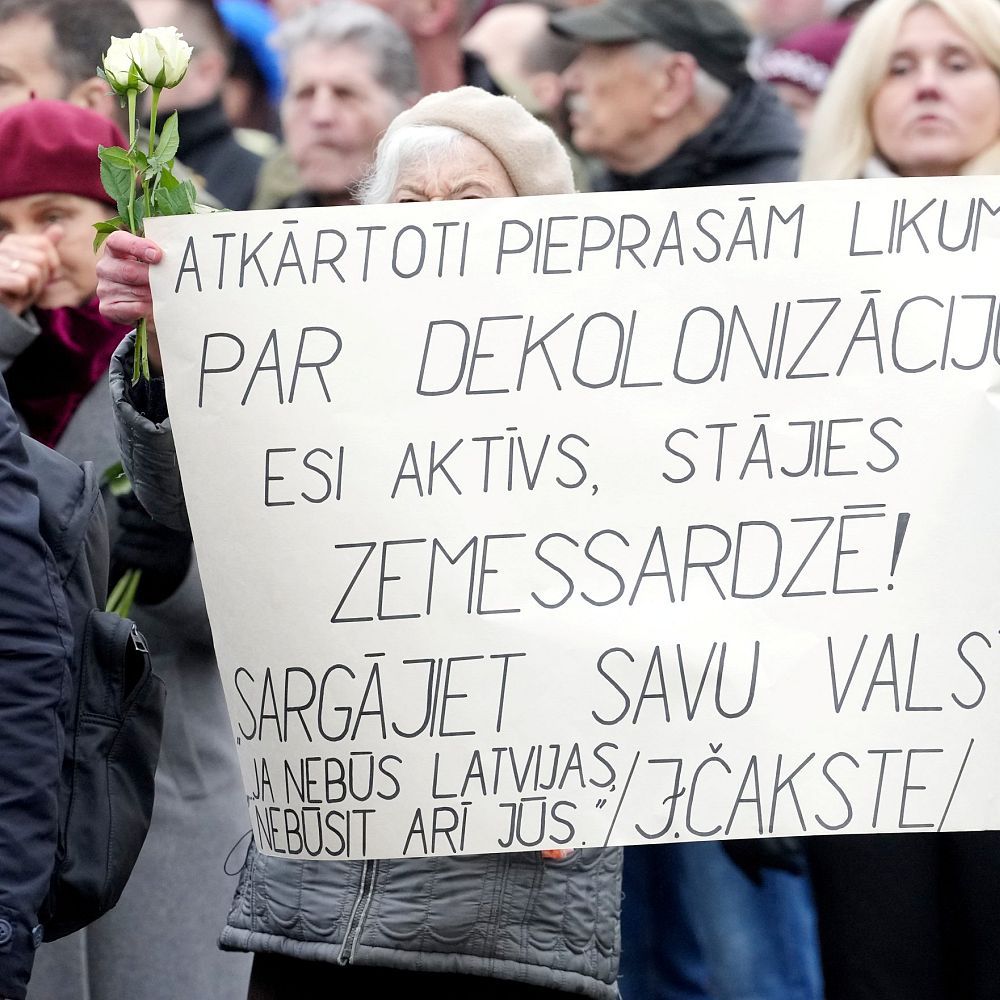 ATKĀRTOTI PIEPRASĀM LIKUM
PAR DEKOLONIZĀCIJU
ESI AKTĪVS, STĀJIES
ZEMESSARDZĒ!
"SARGĀJIET SAVU VALS
JA NEBŪS LATVIJAS,
NEBŪSIT ARĪ JŪS."/J.ČAKSTE/